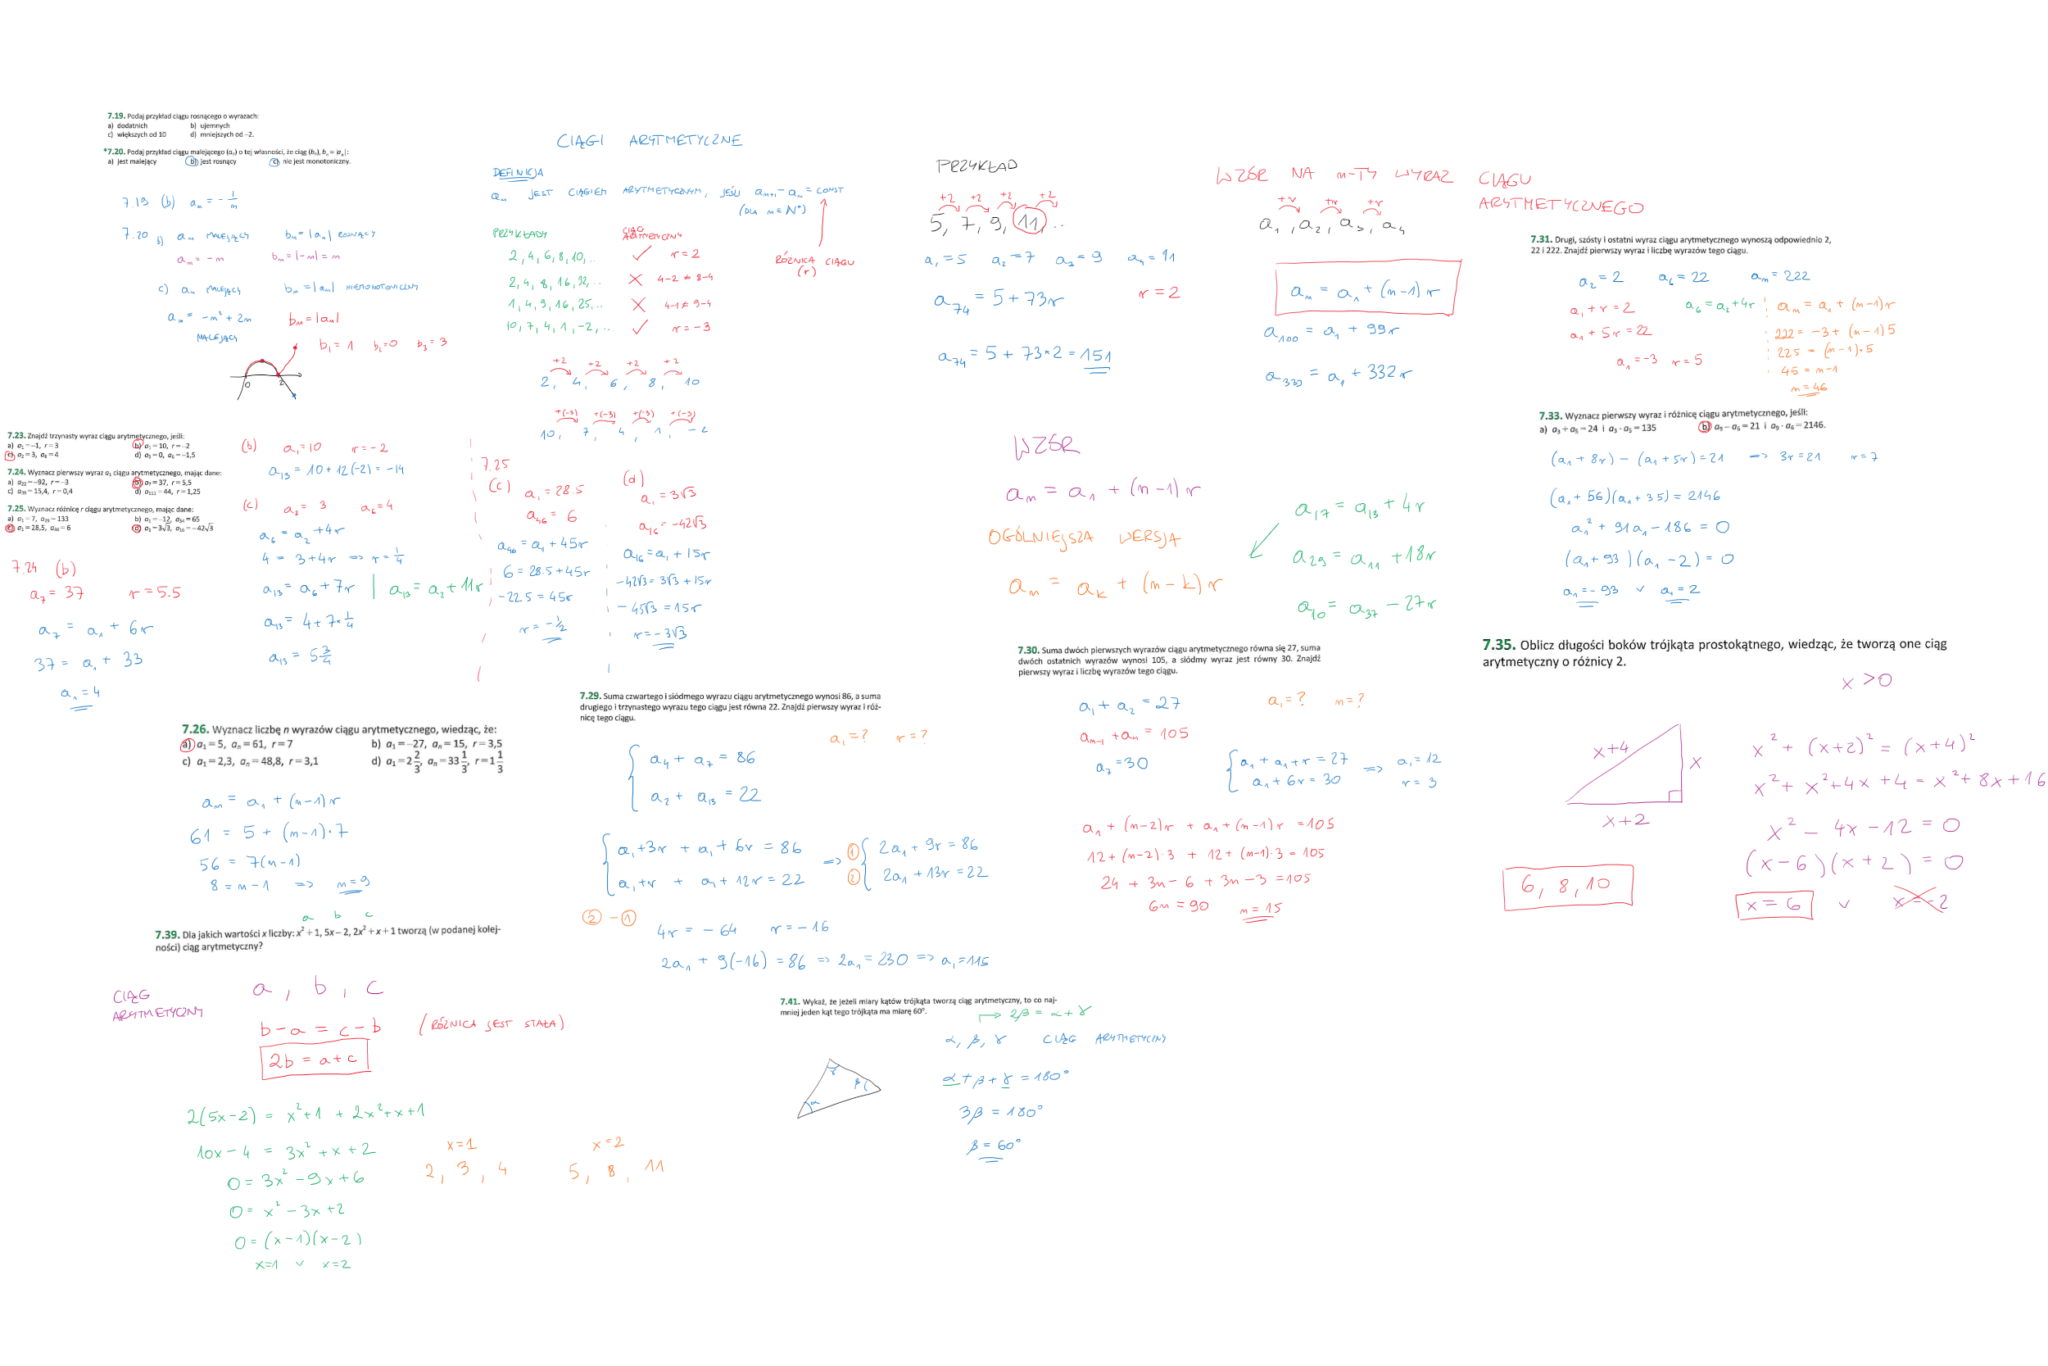 7.19. Podaj przykład ciągu rosnącego o wyrazach:
a) dodatnich b) ujemnych
c) większych od 10 d) mniejszych od −2.
*7.20. Podaj przykład ciągu malejącego (aₙ) o tej własności, że ciąg (bₙ), bₙ = |aₙ|:
a) jest malejący b) jest rosnący c) nie jest monotoniczny.
7.19 (b) aₙ = −1/n
7.20 b) aₙ MALEJĄCY bₙ = |aₙ| ROSNĄCY
aₙ = −n bₙ = |−n| = n
c) aₙ MALEJĄCY bₙ = |aₙ| NIEMONOTONICZNY
aₙ = −n² + 2n bₙ = |aₙ|
MALEJĄCY
b₁ = 1 b₂ = 0 b₃ = 3
0 2
CIĄGI ARYTMETYCZNE
DEFINICJA
aₙ JEST CIĄGIEM ARYTMETYCZNYM, JEŚLI aₙ₊₁ − aₙ = CONST
(DLA n ∈ N⁺)
RÓŻNICA CIĄGU
(r)
PRZYKŁADY CIĄG ARYTMETYCZNY
2, 4, 6, 8, 10, .. ✓ r = 2
2, 4, 8, 16, 32, .. × 4−2 ≠ 8−4
1, 4, 9, 16, 25, .. × 4−1 ≠ 9−4
10, 7, 4, 1, −2, .. ✓ r = −3
+2 +2 +2 +2
2, 4, 6, 8, 10
+(−3) +(−3) +(−3) +(−3)
10, 7, 4, 1, −2
PRZYKŁAD
+2 +2 +2 +2
5, 7, 9, 11, ..
a₁ = 5 a₂ = 7 a₃ = 9 a₄ = 11
a₇₄ = 5 + 73r r = 2
a₇₄ = 5 + 73·2 = 151
WZÓR NA n-TY WYRAZ CIĄGU
ARYTMETYCZNEGO
+r +r +r
a₁, a₂, a₃, a₄
aₙ = a₁ + (n−1) r
a₁₀₀ = a₁ + 99r
a₃₃₀ = a₁ + 332r
7.31. Drugi, szósty i ostatni wyraz ciągu arytmetycznego wynoszą odpowiednio 2,
22 i 222. Znajdź pierwszy wyraz i liczbę wyrazów tego ciągu.
a₂ = 2 a₆ = 22 aₙ = 222
a₁ + r = 2 a₆ = a₂ + 4r
a₁ + 5r = 22
a₁ = −3 r = 5
aₙ = a₁ + (n−1)r
222 = −3 + (n−1)5
225 = (n−1)·5
45 = n−1
n = 46
7.33. Wyznacz pierwszy wyraz i różnicę ciągu arytmetycznego, jeśli:
a) a₃ + a₅ = 24 i a₃ · a₅ = 135 b) a₉ − a₆ = 21 i a₉ · a₆ = 2146.
(a₁ + 8r) − (a₁ + 5r) = 21 => 3r = 21 r = 7
(a₁ + 56)(a₁ + 35) = 2146
a₁² + 91a₁ − 186 = 0
(a₁ + 93)(a₁ − 2) = 0
a₁ = −93 ∨ a₁ = 2
7.23. Znajdź trzynasty wyraz ciągu arytmetycznego, jeśli:
a) a₁ = −1, r = 3 b) a₁ = 10, r = −2
c) a₂ = 3, a₆ = 4 d) a₅ = 0, a₆ = −1,5
7.24. Wyznacz pierwszy wyraz a₁ ciągu arytmetycznego, mając dane:
a) a₂₂ = −92, r = −3 b) a₇ = 37, r = 5,5
c) a₃₉ = 15,4, r = 0,4 d) a₁₁₁ = 44, r = 1,25
7.25. Wyznacz różnicę r ciągu arytmetycznego, mając dane:
c) a₁ = 28,5, a₄₆ = 6 d) a₁ = 3√3, a₁₆ = −42√3
(b) a₁ = 10 r = −2
a₁₃ = 10 + 12(−2) = −14
(c) a₂ = 3 a₆ = 4
a₆ = a₂ + 4r
4 = 3 + 4r => r = 1/4
a₁₃ = a₆ + 7r | a₁₃ = a₂ + 11r
a₁₃ = 4 + 7·1/4
a₁₃ = 5 3/4
7.24 (b)
a₇ = 37 r = 5.5
a₇ = a₁ + 6r
37 = a₁ + 33
a₁ = 4
7.25
(c) a₁ = 28.5
a₄₆ = 6
a₄₆ = a₁ + 45r
6 = 28.5 + 45r
−22.5 = 45r
r = −1/2
(d)
a₁ = 3√3
a₁₆ = −42√3
a₁₆ = a₁ + 15r
−42√3 = 3√3 + 15r
−45√3 = 15r
r = −3√3
WZÓR
aₙ = a₁ + (n−1) r
OGÓLNIEJSZA WERSJA
aₙ = aₖ + (n−k) r
a₁₇ = a₁₃ + 4r
a₂₉ = a₁₁ + 18r
a₁₀ = a₃₇ − 27r
7.26. Wyznacz liczbę n wyrazów ciągu arytmetycznego, wiedząc, że:
a) a₁ = 5, aₙ = 61, r = 7 b) a₁ = −27, aₙ = 15, r = 3,5
c) a₁ = 2,3, aₙ = 48,8, r = 3,1 d) a₁ = 2 2/3, aₙ = 33 1/3, r = 1 1/3
aₙ = a₁ + (n−1) r
61 = 5 + (n−1)·7
56 = 7(n−1)
8 = n−1 => n = 9
7.29. Suma czwartego i siódmego wyrazu ciągu arytmetycznego wynosi 86, a suma
drugiego i trzynastego wyrazu tego ciągu jest równa 22. Znajdź pierwszy wyraz i róż-
nicę tego ciągu.
a₁ = ? r = ?
a₄ + a₇ = 86
a₂ + a₁₃ = 22
a₁ + 3r + a₁ + 6r = 86 => ① 2a₁ + 9r = 86
a₁ + r + a₁ + 12r = 22 ② 2a₁ + 13r = 22
② − ①
4r = −64 r = −16
2a₁ + 9(−16) = 86 => 2a₁ = 230 => a₁ = 115
7.30. Suma dwóch pierwszych wyrazów ciągu arytmetycznego równa się 27, suma
dwóch ostatnich wyrazów wynosi 105, a siódmy wyraz jest równy 30. Znajdź
pierwszy wyraz i liczbę wyrazów tego ciągu.
a₁ + a₂ = 27 a₁ = ? n = ?
aₙ₋₁ + aₙ = 105
a₇ = 30
a₁ + a₁ + r = 27 => a₁ = 12
a₁ + 6r = 30 r = 3
a₁ + (n−2)r + a₁ + (n−1)r = 105
12 + (n−2)·3 + 12 + (n−1)·3 = 105
24 + 3n − 6 + 3n − 3 = 105
6n = 90 n = 15
7.35. Oblicz długości boków trójkąta prostokątnego, wiedząc, że tworzą one ciąg
arytmetyczny o różnicy 2.
x > 0
x+4 x
x+2
x² + (x+2)² = (x+4)²
x² + x² + 4x + 4 = x² + 8x + 16
x² − 4x − 12 = 0
(x−6)(x+2) = 0
x = 6 ∨ x = −2
6, 8, 10
a b c
7.39. Dla jakich wartości x liczby: x² + 1, 5x − 2, 2x² + x + 1 tworzą (w podanej kolej-
ności) ciąg arytmetyczny?
CIĄG
ARYTMETYCZNY
a, b, c
b − a = c − b (RÓŻNICA JEST STAŁA)
2b = a + c
2(5x−2) = x²+1 + 2x²+x+1
10x − 4 = 3x² + x + 2
0 = 3x² − 9x + 6
0 = x² − 3x + 2
0 = (x−1)(x−2)
x=1 ∨ x=2
x=1
2, 3, 4
x=2
5, 8, 11
7.41. Wykaż, że jeżeli miary kątów trójkąta tworzą ciąg arytmetyczny, to co naj-
mniej jeden kąt tego trójkąta ma miarę 60°.
2β = α + γ
α, β, γ CIĄG ARYTMETYCZNY
α β γ
α + β + γ = 180°
3β = 180°
β = 60°